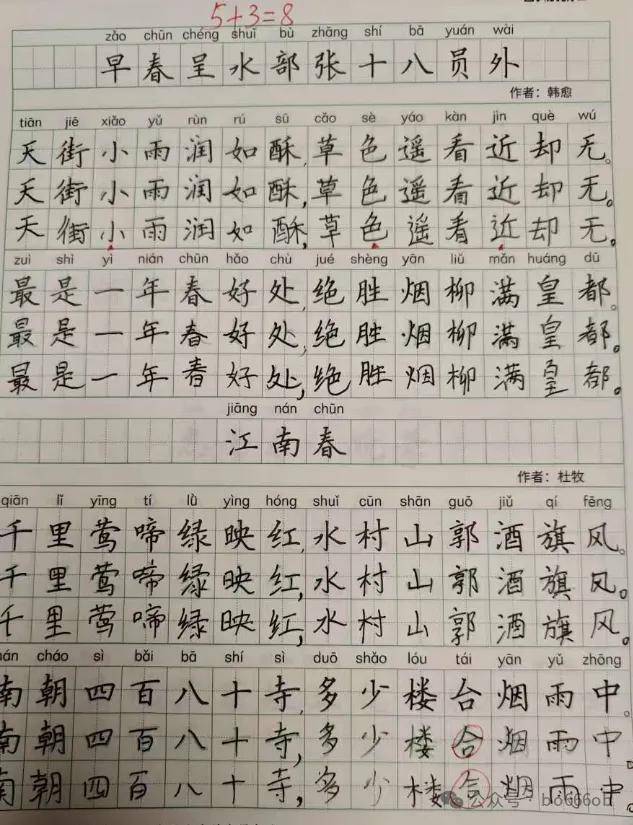 5+3=8
zǎo chūn chéng shuǐ bù zhāng shí bā yuán wài
早春呈水部张十八员外
作者：韩愈
tiān jiē xiǎo yǔ rùn rú sū cǎo sè yáo kàn jìn què wú
天街小雨润如酥,草色遥看近却无。
天街小雨润如酥,草色遥看近却无。
天街小雨润如酥,草色遥看近却无。
zuì shì yì nián chūn hǎo chù jué shèng yān liǔ mǎn huáng dū
最是一年春好处,绝胜烟柳满皇都。
最是一年春好处,绝胜烟柳满皇都。
最是一年春好处,绝胜烟柳满皇都。
jiāng nán chūn
江南春
作者：杜牧
qiān lǐ yīng tí lǜ yìng hóng shuǐ cūn shān guō jiǔ qí fēng
千里莺啼绿映红,水村山郭酒旗风。
千里莺啼绿映红,水村山郭酒旗风。
千里莺啼绿映红,水村山郭酒旗风。
nán cháo sì bǎi bā shí sì duō shǎo lóu tái yān yǔ zhōng
南朝四百八十寺,多少楼台烟雨中。
南朝四百八十寺,多少楼合烟雨中
南朝四百八十寺,多少楼合烟雨中